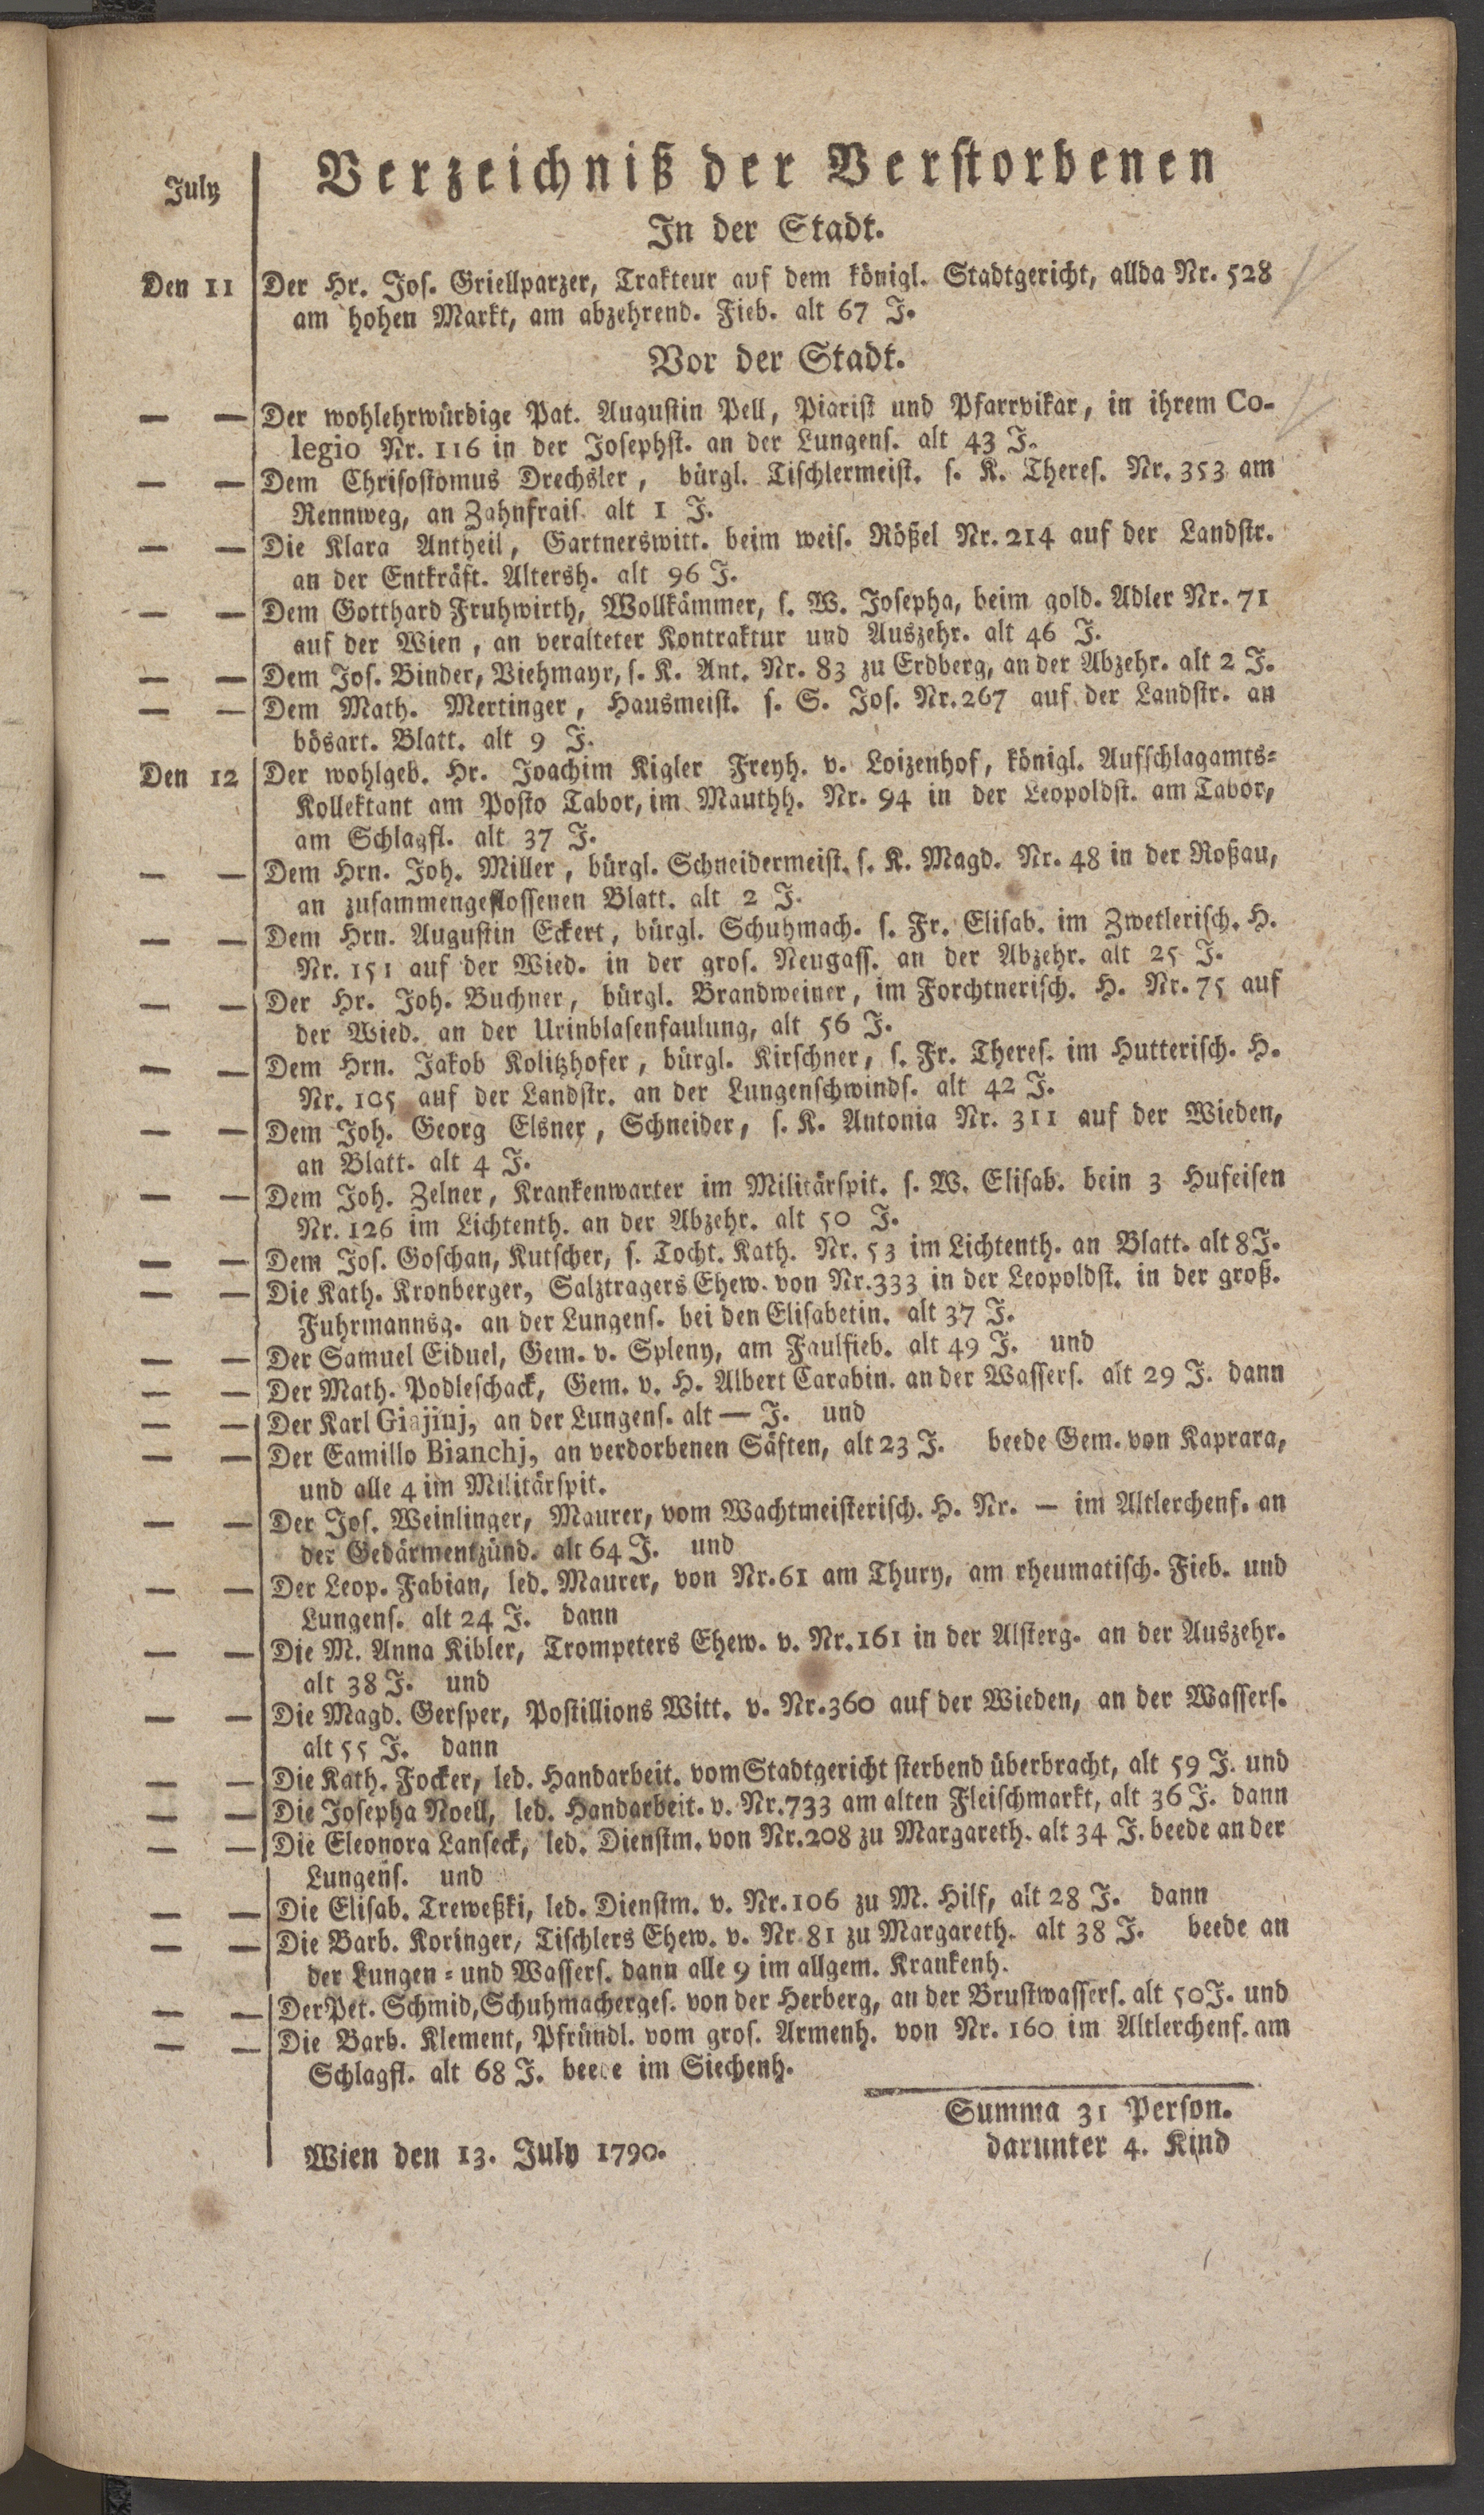 July
Verzeichniß der Verstorbenen
In der Stadt.
Den 11 Der Hr. Jos. Griellparzer, Trakteur auf dem königl. Stadtgericht, allda Nr. 528
am hohen Markt, am abzehrend. Fieb. alt 67 J.
Vor der Stadt.
— — Der wohlehrwürdige Pat. Augustin Pell, Piarist und Pfarrvikar, in ihrem Co-
legio Nr. 116 in der Josephst. an der Lungens. alt 43 J.
— — Dem Chrisostomus Drechsler, bürgl. Tischlermeist. s. K. Theres. Nr. 353 am
Rennweg, an Zahnfrais. alt 1 J.
— — Die Klara Antheil, Gartnerswitt. beim weis. Rößel Nr. 214 auf der Landstr.
an der Entkräft. Altersh. alt 96 J.
— — Dem Gotthard Fruhwirth, Wollkämmer, s. W. Josepha, beim gold. Adler Nr. 71
auf der Wien, an veralteter Kontraktur und Auszehr. alt 46 J.
— — Dem Jos. Binder, Viehmayr, s. K. Ant. Nr. 83 zu Erdberg, an der Abzehr. alt 2 J.
— — Dem Math. Mertinger, Hausmeist. s. S. Jos. Nr. 267 auf der Landstr. an
bösart. Blatt. alt 9 J.
Den 12 Der wohlgeb. Hr. Joachim Kigler Freyh. v. Loizenhof, königl. Aufschlagamts-
Kollektant am Posto Tabor, im Mauthh. Nr. 94 in der Leopoldst. am Tabor,
am Schlagfl. alt 37 J.
— — Dem Hrn. Joh. Miller, bürgl. Schneidermeist. s. K. Magd. Nr. 48 in der Roßau,
an zusammengeflossenen Blatt. alt 2 J.
— — Dem Hrn. Augustin Eckert, bürgl. Schuhmach. s. Fr. Elisab. im Zwetlerisch. H.
Nr. 151 auf der Wied. in der gros. Neugass. an der Abzehr. alt 25 J.
— — Der Hr. Joh. Buchner, bürgl. Brandweiner, im Forchtnerisch. H. Nr. 75 auf
der Wied. an der Urinblasenfaulung, alt 56 J.
— — Dem Hrn. Jakob Kolitzhofer, bürgl. Kirschner, s. Fr. Theres. im Hutterisch. H.
Nr. 105 auf der Landstr. an der Lungenschwinds. alt 42 J.
— — Dem Joh. Georg Elsner, Schneider, s. K. Antonia Nr. 311 auf der Wieden,
an Blatt. alt 4 J.
— — Dem Joh. Zelner, Krankenwarter im Militärspit. s. W. Elisab. bein 3 Hufeisen
Nr. 126 im Lichtenth. an der Abzehr. alt 50 J.
— — Dem Jos. Goschan, Kutscher, s. Tocht. Kath. Nr. 53 im Lichtenth. an Blatt. alt 8 J.
— — Die Kath. Kronberger, Salztragers Ehew. von Nr. 333 in der Leopoldst. in der groß.
Fuhrmannsg. an der Lungens. bei den Elisabetin. alt 37 J.
— — Der Samuel Eiduel, Gem. v. Spleny, am Faulfieb. alt 49 J. und
— — Der Math. Podleschack, Gem. v. H. Albert Carabin. an der Wassers. alt 29 J. dann
— — Der Karl Giajinj, an der Lungens. alt — J. und
— — Der Eamillo Bianchj, an verdorbenen Säften, alt 23 J. beede Gem. von Kaprara,
und alle 4 im Militärspit.
— — Der Jos. Weinlinger, Maurer, vom Wachtmeisterisch. H. Nr. — im Altlerchenf. an
der Gedärmentzünd. alt 64 J. und
— — Der Leop. Fabian, led. Maurer, von Nr. 61 am Thury, am rheumatisch. Fieb. und
Lungens. alt 24 J. dann
— — Die M. Anna Kibler, Trompeters Ehew. v. Nr. 161 in der Alsterg. an der Auszehr.
alt 38 J. und
— — Die Magd. Gersper, Postillions Witt. v. Nr. 360 auf der Wieden, an der Wassers.
alt 55 J. dann
— — Die Kath. Focker, led. Handarbeit. vom Stadtgericht sterbend überbracht, alt 59 J. und
— — Die Josepha Noell, led. Handarbeit. v. Nr. 733 am alten Fleischmarkt, alt 36 J. dann
— — Die Eleonora Lanseck, led. Dienstm. von Nr. 208 zu Margareth. alt 34 J. beede an der
Lungens. und
— — Die Elisab. Treweßki, led. Dienstm. v. Nr. 106 zu M. Hilf, alt 28 J. dann
— — Die Barb. Koringer, Tischlers Ehew. v. Nr. 81 zu Margareth. alt 38 J. beede an
der Lungen- und Wassers. dann alle 9 im allgem. Krankenh.
— — Der Pet. Schmid, Schuhmacherges. von der Herberg, an der Brustwassers. alt 50 J. und
— — Die Barb. Klement, Pfründl. vom gros. Armenh. von Nr. 160 im Altlerchenf. am
Schlagfl. alt 68 J. beede im Siechenh.
Summa 31 Person.
darunter 4. Kind
Wien den 13. July 1790.